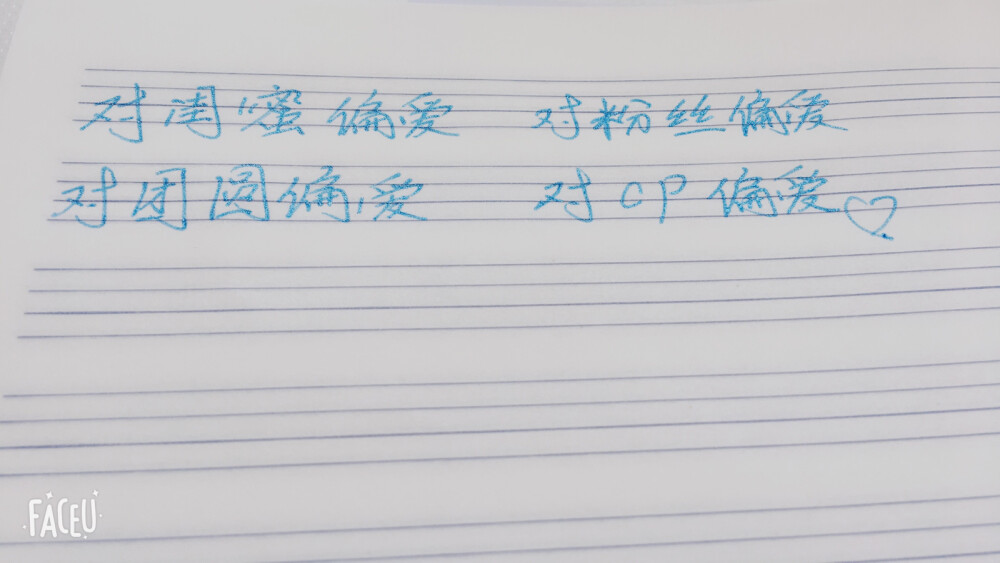 对闺蜜偏爱 对粉丝偏爱
对团圆偏爱 对CP偏爱
FACEU